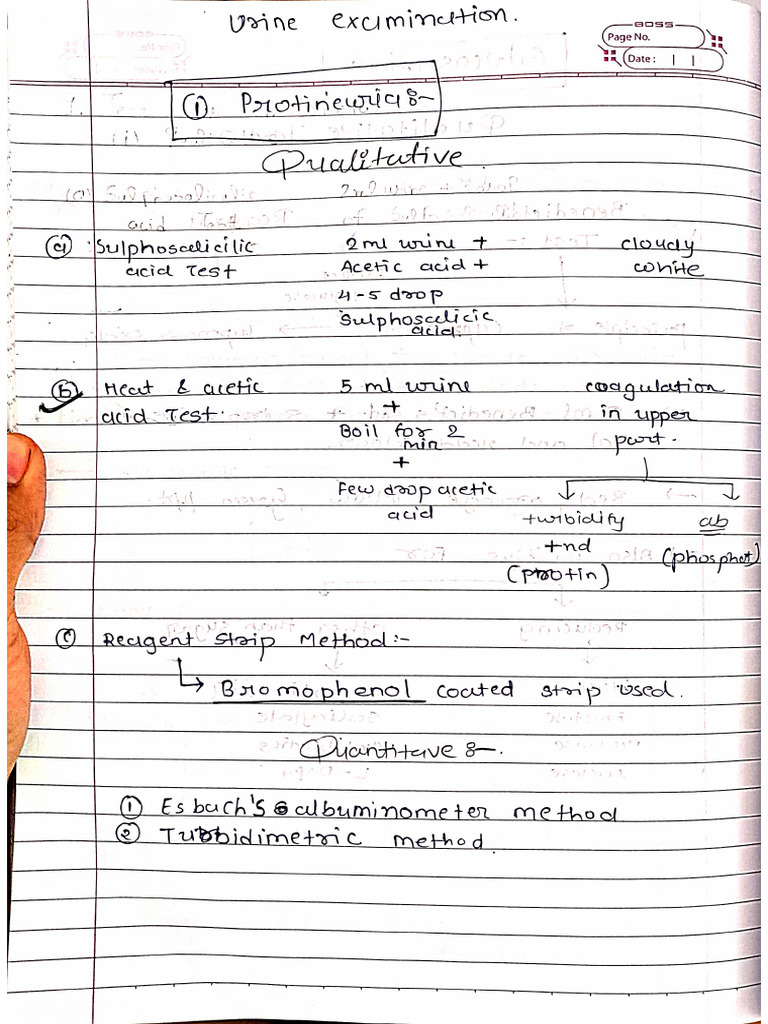 Urine examination.
BOSS
Page No.
Date: | |
① Protineuria :-
Qualitative
ⓐ Sulphosalicilic 2ml urine + cloudy
acid Test Acetic acid + white
4-5 drop
Sulphosalicic
acid.
ⓑ Heat & acetic 5 ml urine coagulation
acid Test. + in upper
Boil for 2 part.
min
+
Few drop acetic
acid turbidify ab
+nd (phosphet)
(protin)
ⓒ Reagent Strip Method:-
↳ Bromophenol coated strip used.
Quantitave :-
① Esbach's albuminometer method
② Turbidimetric method.